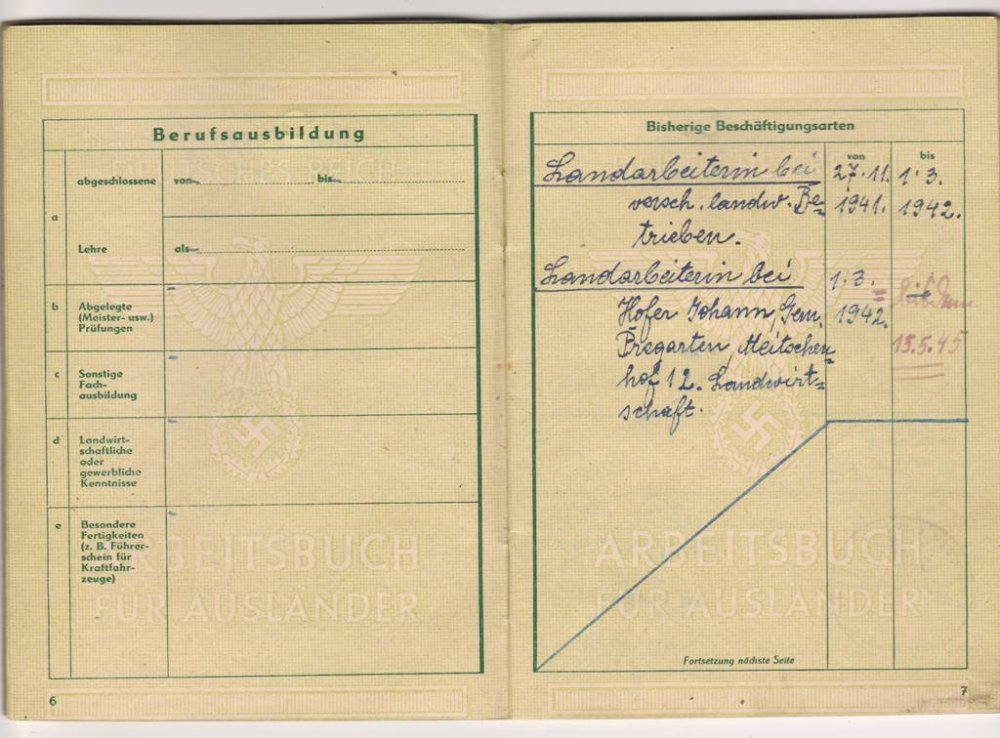 Berufsausbildung
DEUTSCHES REICH
a
abgeschlossene
von
bis
Lehre
als
b
Abgelegte
(Meister- usw.)
Prüfungen
c
Sonstige
Fach-
ausbildung
d
Landwirt-
schaftliche
oder
gewerbliche
Kenntnisse
e
Besondere
Fertigkeiten
(z. B. Führer-
schein für
Kraftfahr-
zeuge)
ARBEITSBUCH
FÜR AUSLÄNDER
6
Bisherige Beschäftigungsarten
von
bis
Landarbeiterin bei 27.11. 1.3.
versch. landw. Be- 1941. 1942.
trieben.
Landarbeiterin bei 1.3.
Hofer Johann, Gem. 1942.
Pregarten, Meitschen- 15.5.45
hof 12. Landwirt-
schaft.
ARBEITSBUCH
FÜR AUSLÄNDER
Fortsetzung nächste Seite
7